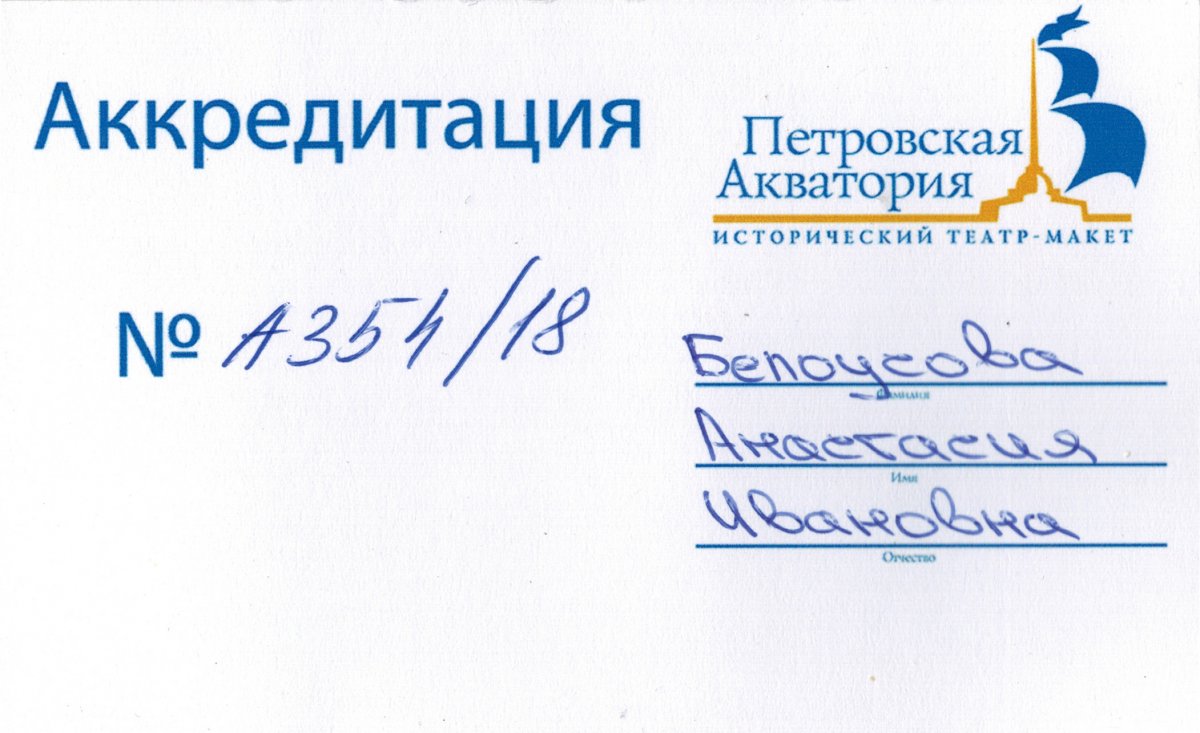 Аккредитация
Петровская
Акватория
ИСТОРИЧЕСКИЙ ТЕАТР-МАКЕТ
№ А354/18
Белоусова
Фамилия
Анастасия
Имя
Ивановна
Отчество